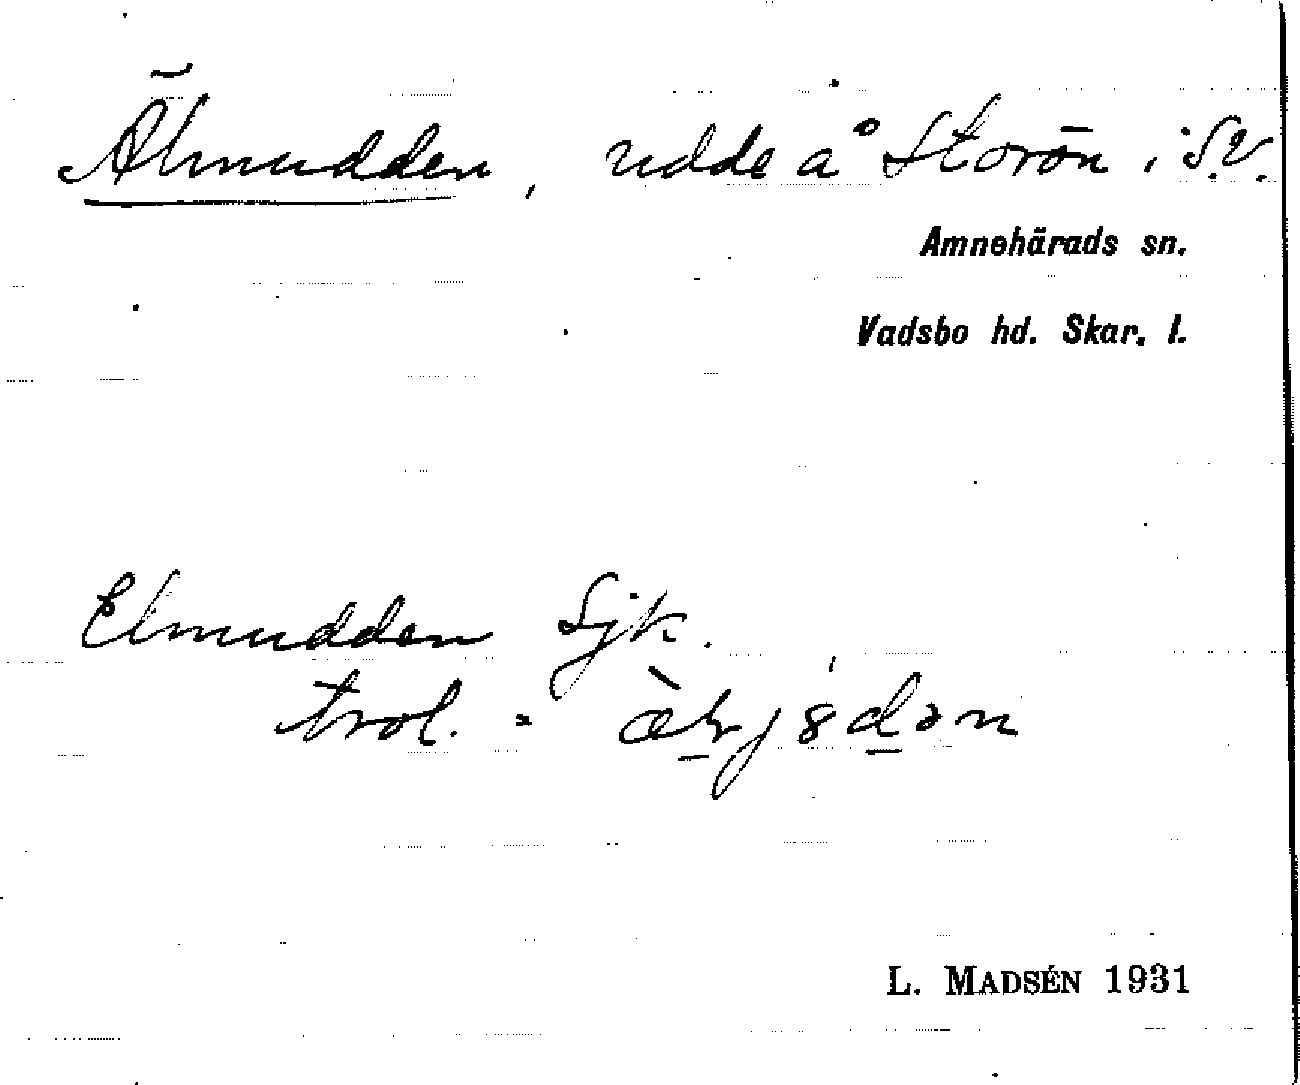 Älmudden, udde å Storön i S.V.
Amnehärads sn.
Vadsbo hd. Skar. l.
Elmudden Sjk.
trol. =
L. MADSÉN 1931